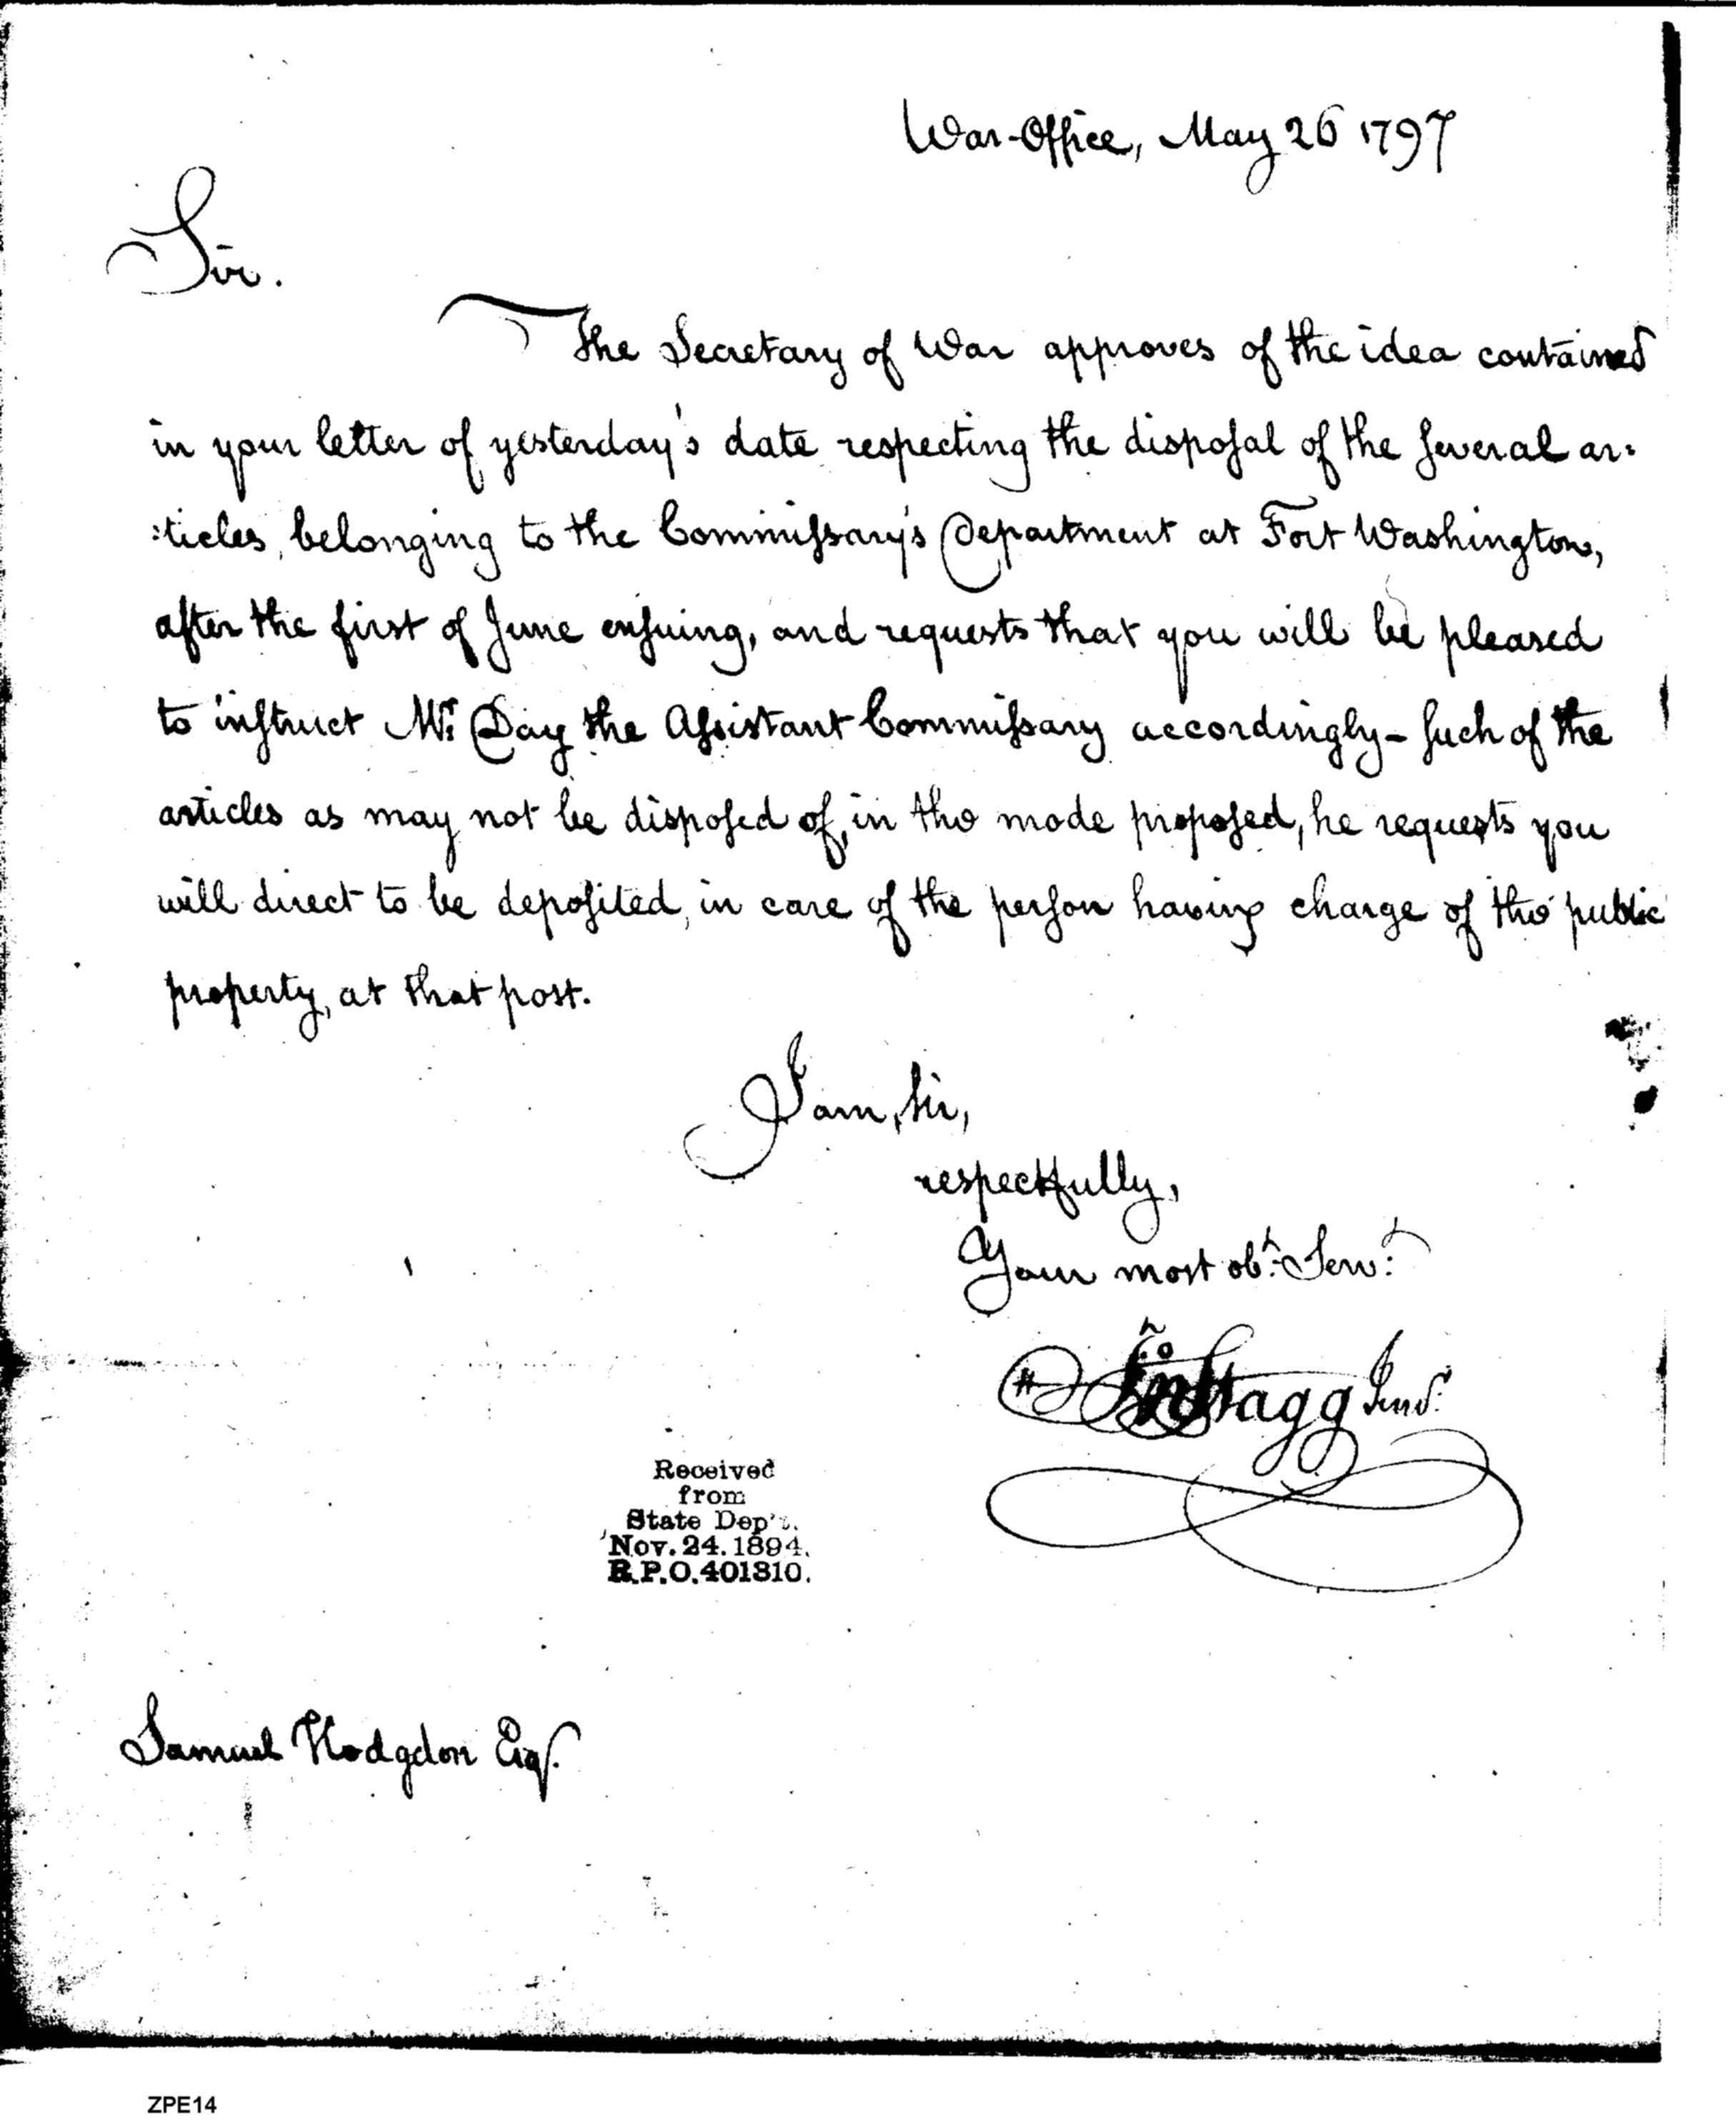 War-Office, May 26 1797
Sir.
The Secretary of War approves of the idea contained
in your letter of yesterday's date respecting the disposal of the several ar:
:ticles, belonging to the Commissary's Department at Fort Washington,
after the first of June ensuing, and requests that you will be pleased
to instruct Mr. Day the Assistant Commissary accordingly - Such of the
articles as may not be disposed of, in the mode proposed, he requests you
will direct to be deposited, in care of the person having charge of the public
property, at that post.
I am, Sir,
respectfully,
Your most obt. Servt.
Jno Stagg Junr.
Received
from
State Dep't.
Nov. 24. 1894.
R.P.O. 401310.
Samuel Hodgdon Esqr.
ZPE14